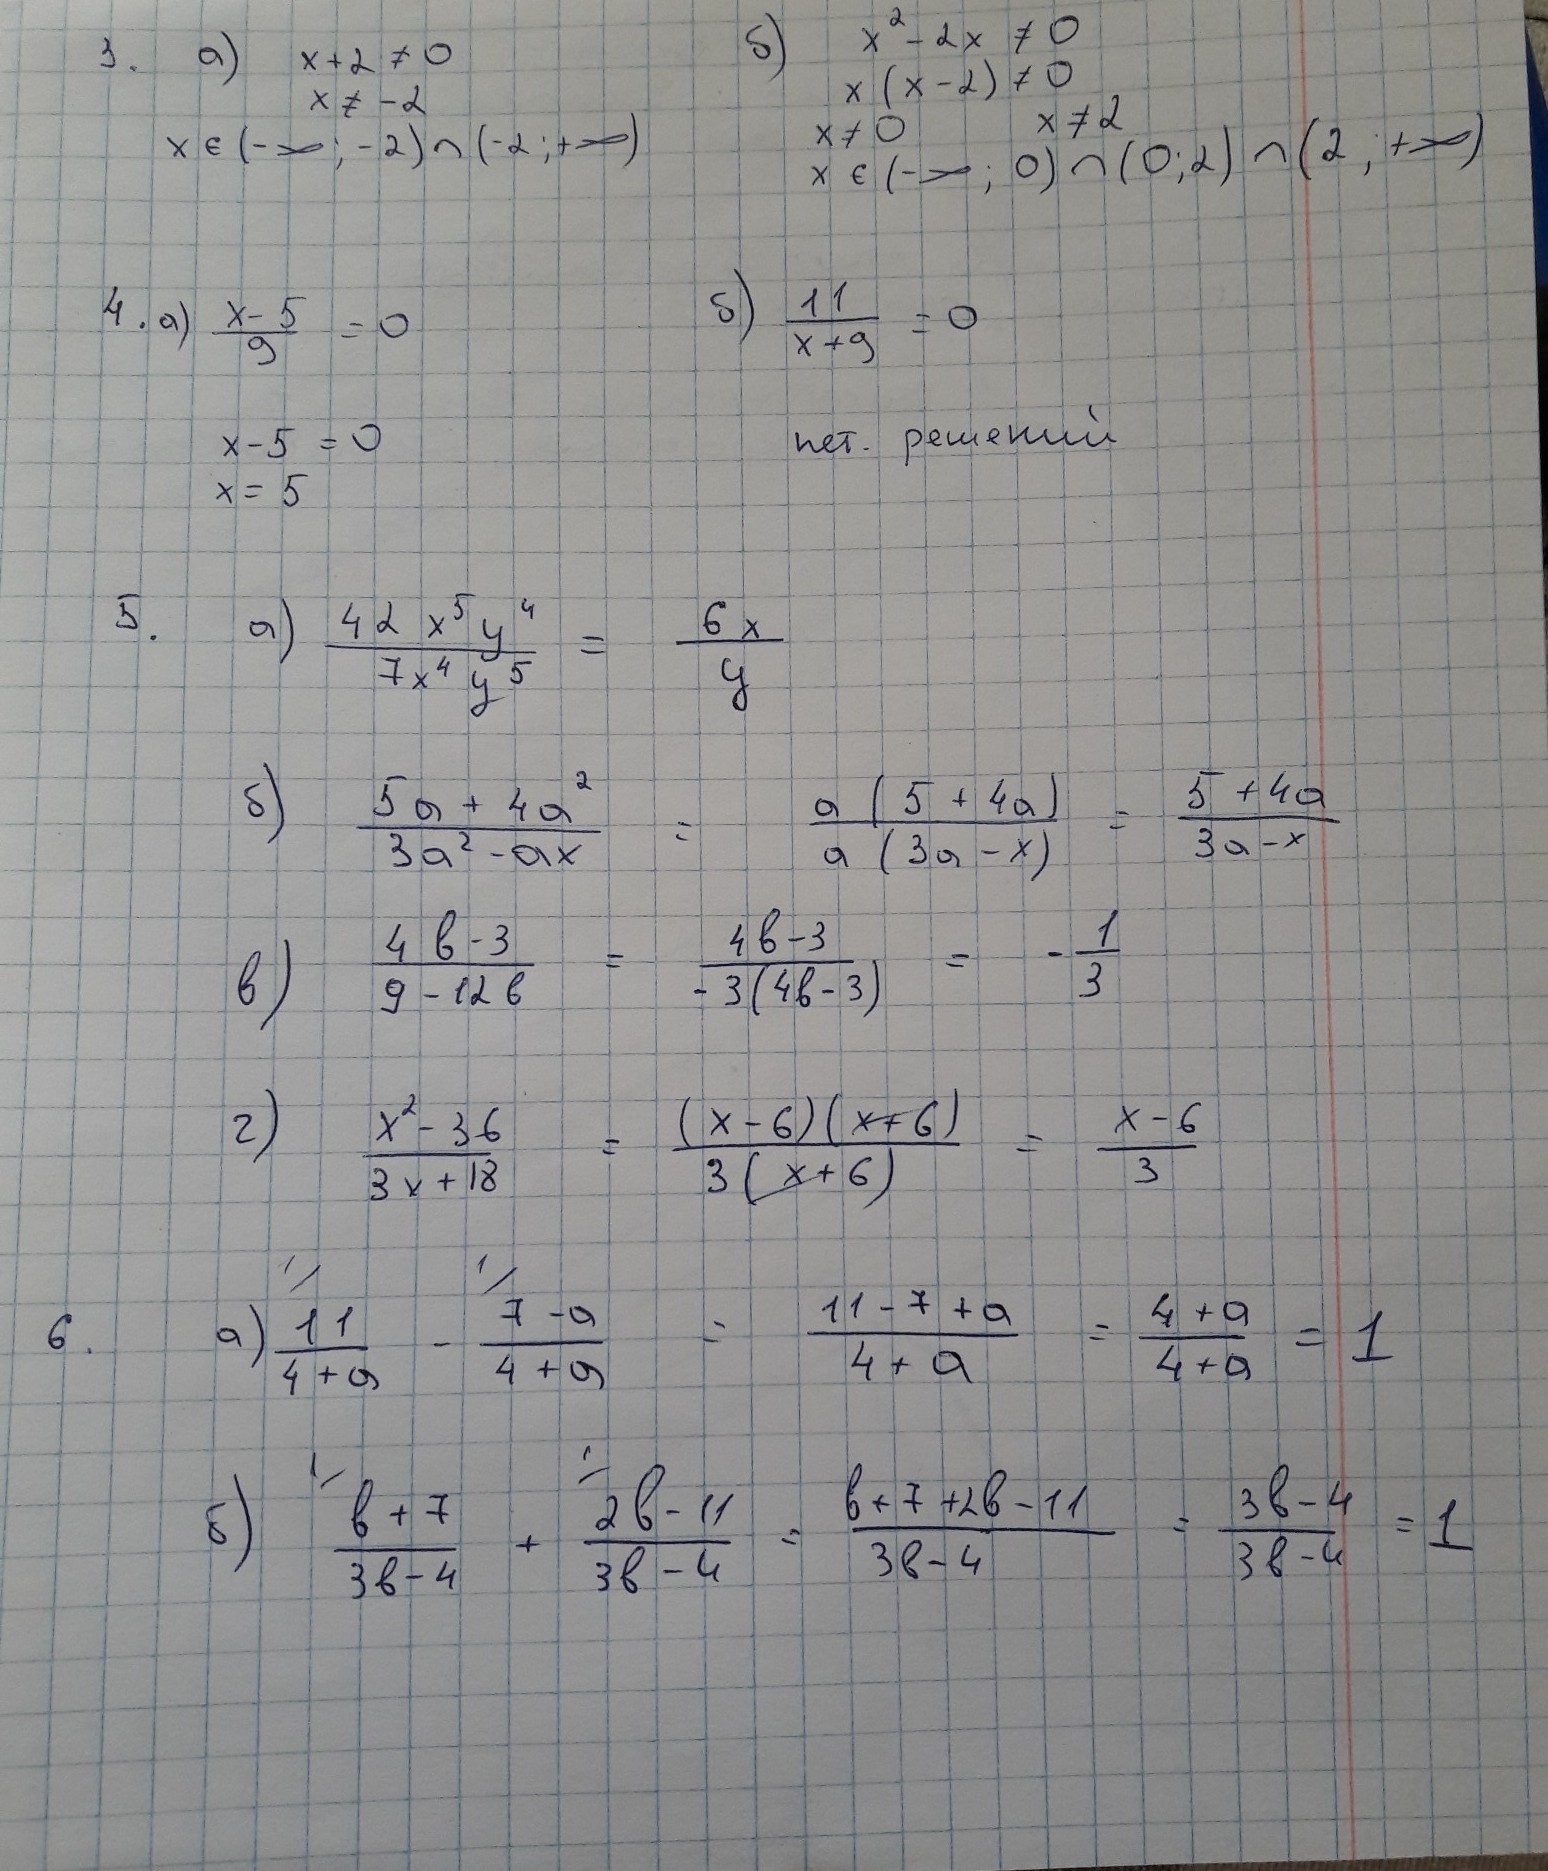 3. а) x+2 ≠ 0 б) x² - 2x ≠ 0
x ≠ -2 x (x-2) ≠ 0
x ≠ 0 x ≠ 2
x ∈ (-∞; -2) ∩ (-2; +∞) x ∈ (-∞; 0) ∩ (0; 2) ∩ (2; +∞)
4. а) (x-5)/9 = 0 б) 11/(x+9) = 0
x-5 = 0 нет. решений
x = 5
5. а) 42x⁵y⁴/7x⁴y⁵ = 6x/y
б) (5a + 4a²)/(3a² - ax) = a(5 + 4a)/a(3a - x) = (5 + 4a)/(3a - x)
в) (4b - 3)/(9 - 12b) = (4b - 3)/-3(4b - 3) = -1/3
г) (x² - 36)/(3x + 18) = (x - 6)(x + 6)/3(x + 6) = (x - 6)/3
1/ 1/
6. а) 11/(4 + a) - (7 - a)/(4 + a) = (11 - 7 + a)/(4 + a) = (4 + a)/(4 + a) = 1
1/ 1/
б) (b + 7)/(3b - 4) + (2b - 11)/(3b - 4) = (b + 7 + 2b - 11)/(3b - 4) = (3b - 4)/(3b - 4) = 1